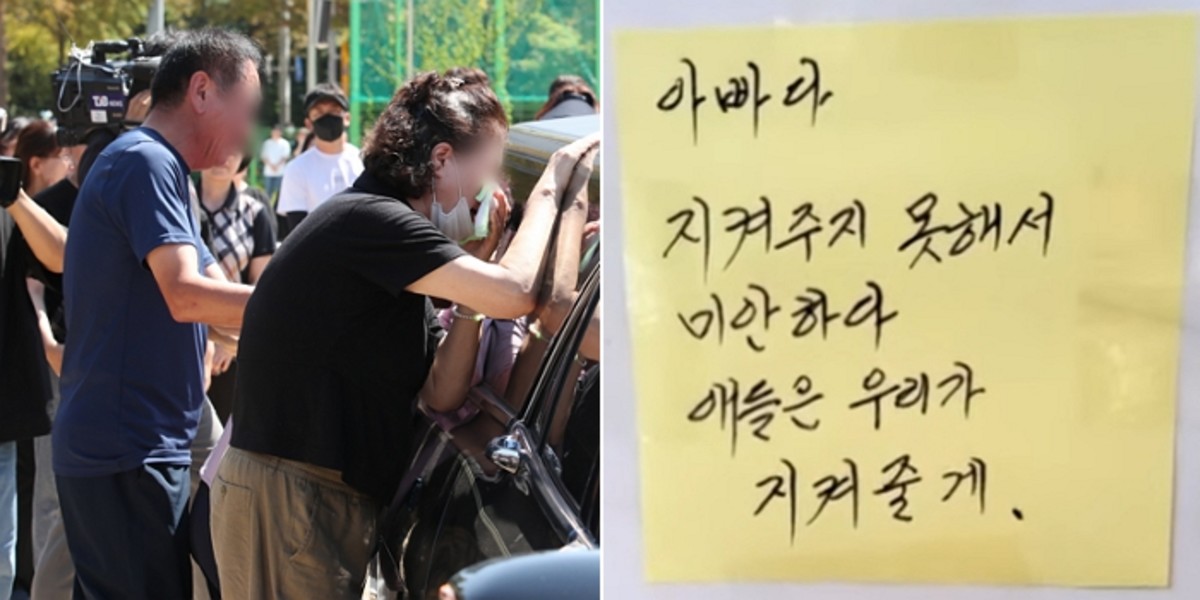 TJB NEWS
아빠다
지켜주지 못해서
미안하다
애들은 우리가
지켜줄게.